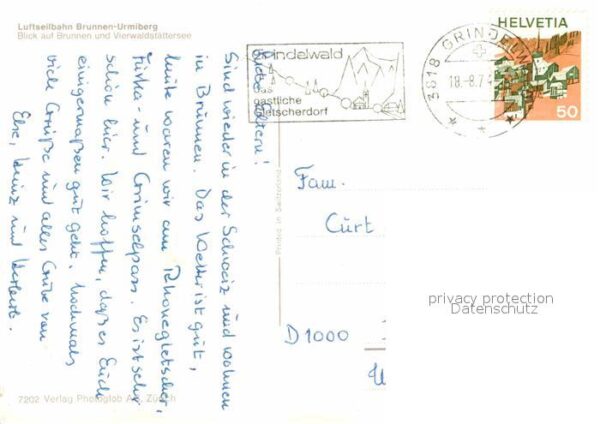 Luftseilbahn Brunnen-Urmiberg
Blick auf Brunnen und Vierwaldstättersee
Eltern!
Sind wieder in der Schweiz und wohnen
in Brunnen. Das Wetter ist gut,
heute waren wir am Rhonegletscher,
Furka- und Grimselpass. Es ist sehr
schön hier. Wir hoffen, daß es Euch
einigermaßen gut geht. Nochmals
viele Grüße und alles Gute von
Heinz und
7202 Verlag Photoglob AG, Zürich
Printed in Switzerland
Grindelwald
Das
gastliche
Gletscherdorf
3818 GRINDELW
18.-8.7
HELVETIA
50
Fam.
Curt
D 1000
privacy protection
Datenschutz